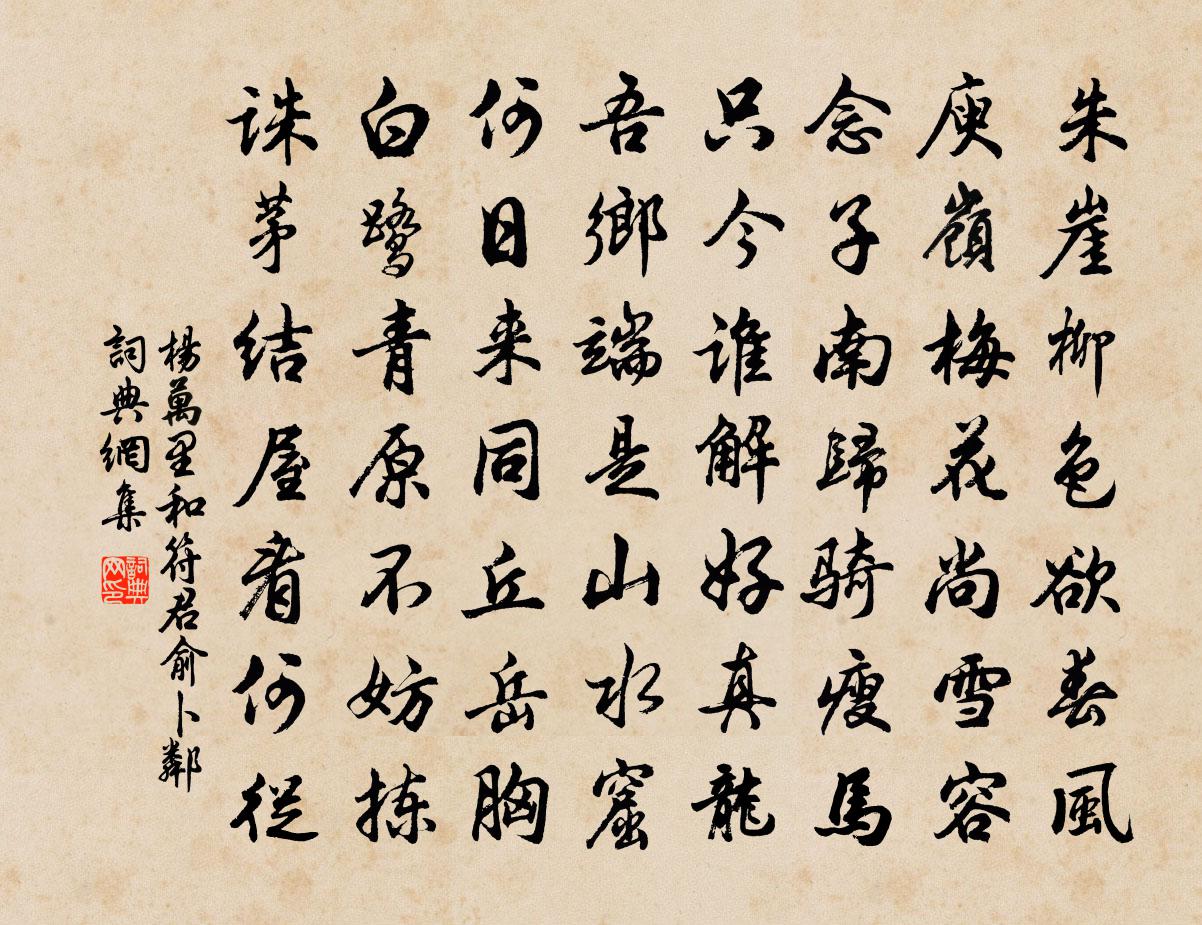 朱崖柳色欲春風
庾嶺梅花尚雪容
念子南歸騎瘦馬
只今誰解好真龍
吾鄉端是山水窟
何日来同丘岳胸
白鷺青原不妨揀
誅茅結屋看何從
楊萬里和符君俞卜鄰
詞典網集
詞典網印